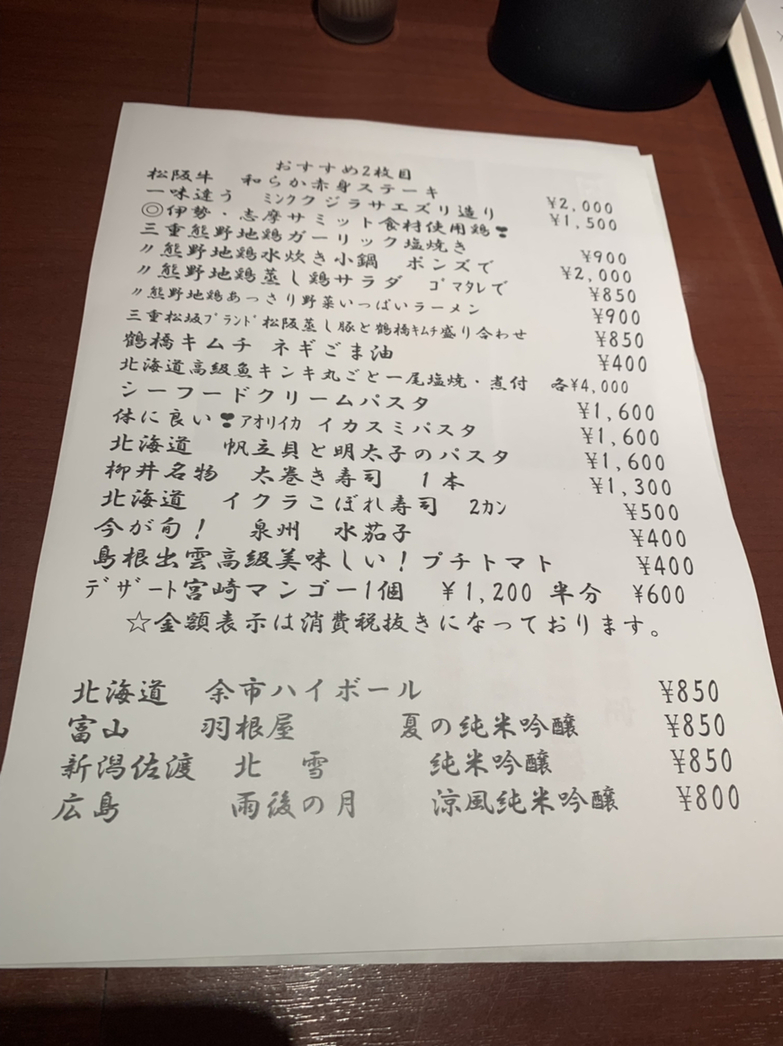 おすすめ2枚目
松阪牛　和らか赤身ステーキ　¥2,000
一味違う　ミンククジラサエズリ造り　¥1,500
◎伊勢・志摩サミット食材使用鶏❣
三重熊野地鶏ガーリック塩焼き　¥900
〃熊野地鶏水炊き小鍋　ポンズで　¥2,000
〃熊野地鶏蒸し鶏サラダ　ゴマタレで　¥850
〃熊野地鶏あっさり野菜いっぱいラーメン　¥900
三重松坂ブランド松阪蒸し豚と鶴橋キムチ盛り合わせ　¥850
鶴橋キムチ　ネギごま油　¥400
北海道高級魚キンキ丸ごと一尾塩焼・煮付　各¥4,000
シーフードクリームパスタ　¥1,600
体に良い❣アオリイカ　イカスミパスタ　¥1,600
北海道　帆立貝と明太子のパスタ　¥1,600
柳井名物　太巻き寿司　1本　¥1,300
北海道　イクラこぼれ寿司　2カン　¥500
今が旬！　泉州　水茄子　¥400
島根出雲高級美味しい！プチトマト　¥400
デザート宮崎マンゴー1個　¥1,200 半分　¥600
☆金額表示は消費税抜きになっております。
北海道　余市ハイボール　¥850
富山　羽根屋　夏の純米吟醸　¥850
新潟佐渡　北　雪　純米吟醸　¥850
広島　雨後の月　涼風純米吟醸　¥800